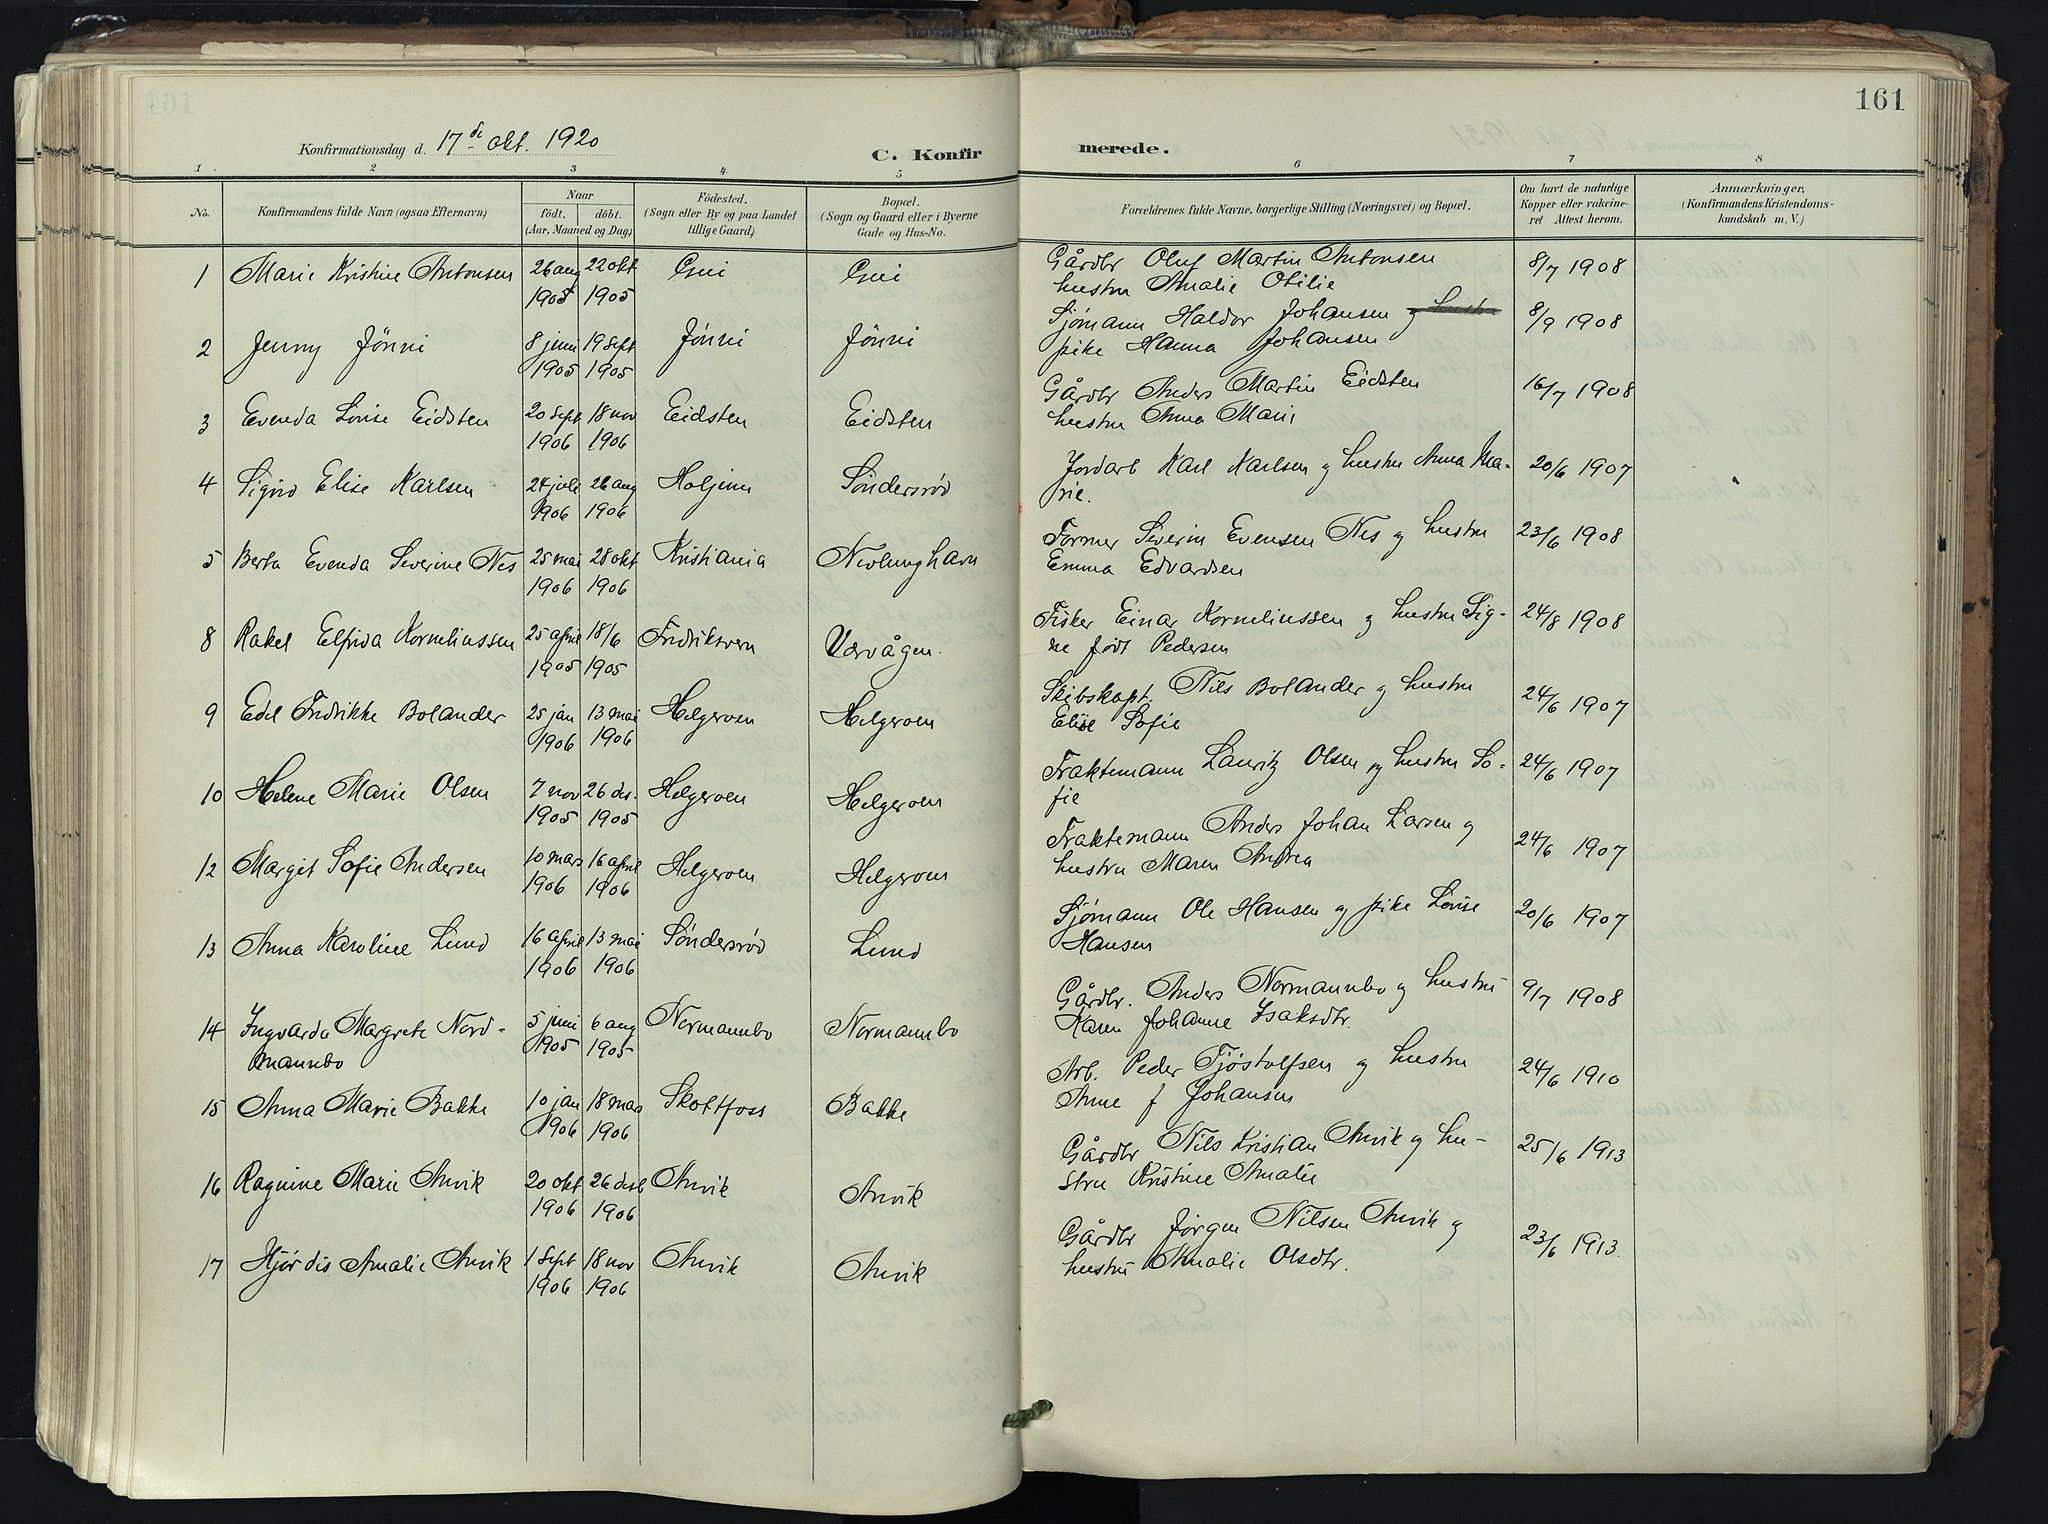 161
Konfirmationsdag d. 17de okt. 1920
C. Konfirmerede.
1 2 3 4 5 6 7 8
No.
Konfirmandens fulde Navn (ogsaa Efternavn)
Naar
født. döbt.
(Aar, Maaned og Dag)
Födested.
(Sogn eller By og paa Landet
tillige Gaard)
Bopæl.
(Sogn og Gaard eller i Byerne
Gade og Hus-No.
Forældrenes fulde Navne, borgerlige Stilling (Næringsvei) og Bopæl.
Om havt de naturlige
Kopper eller vakcine-
ret Attest herom.
Anmærkninger.
(Konfirmandens Kristendoms-
kundskab m. V.)
1 Marie Kristine Antonsen 26 aug 1905 22 okt 1905 Gui Gui
Gårdbr Oluf Martin Antonsen
hustru Amalie Otilie 8/7 1908
2 Jenny Jönni 8 juni 1905 19 sept 1905 Jónni Jönni
Sjømann Haldor Johansen og hustru
pike Hanna Johansen 8/9 1908
3 Evenda Lovise Eidsten 20 sept 1906 18 nov 1906 Eidsten Eidsten
Gårdbr Anders Martin Eidsten
hustru Anna Marie 16/7 1908
4 Signe Elise Karlsen 24 juli 1906 26 aug 1906 Söndersrød
Jordarb Karl Karlsen og hustru Anna Ma-
rie. 20/6 1907
5 Berta Evenda Severine Nes 25 mai 1906 28 okt 1906 Kristiania Nevlunghavn
Former Severin Evensen Nes og hustru
Emma Edvardsen 23/6 1908
8 Rakel Elfrida Korneliussen 25 april 1905 18/6 1905 Fredriksvern Værvågen.
Fisker Einar Korneliussen og hustru Sig-
ne født Pedersen 24/8 1908
9 Edel Fredrikke Bolander 25 jan 1906 13 mai 1906 Helgeroen Helgeroen
Skibskapt. Nils Bolander og hustru
Elise Sofie 24/6 1907
10 Helene Marie Olsen 7 nov 1905 26 des. 1905 Helgeroen Helgeroen
Fraktemann Lauritz Olsen og hustru So-
fie 24/6 1907
12 Margit Sofie Andersen 10 mars 1906 16 april 1906 Helgeroen Helgeroen
Fraktemann Anders Johan Larsen og
hustru Maren Andrea 24/6 1907
13 Anna Karoline Lund 16 april 1906 13 mai 1906 Søndersrød Lund
Sjømann Ole Hansen og pike Lovise
Hansen 20/6 1907
14 Ingvarda Margrete Nord-
mannbo 5 juni 1905 6 aug 1905 Normannbo Normannbo
Gårdbr. Anders Normannbo og hustru
Karen Johanne Isaksdtr. 9/7 1908
15 Anna Marie Bakke 10 jan 1906 18 mars 1906 Skotfoss Bakke
Arb. Peder Tjöstolfsen og hustru
Anne f Johansen 24/6 1910
16 Ragnine Marie Anvik 20 okt 1906 26 des 1906 Anvik Anvik
Gårdbr Nils Kristian Anvik og hu-
stru Kristine Amalie 25/6 1913
17 Hjørdis Amalie Anvik 1 sept 1906 18 nov 1906 Anvik Anvik
Gårdbr Jørgen Nilsen Anvik og
hustru Amalie Olsdtr. 23/6 1913